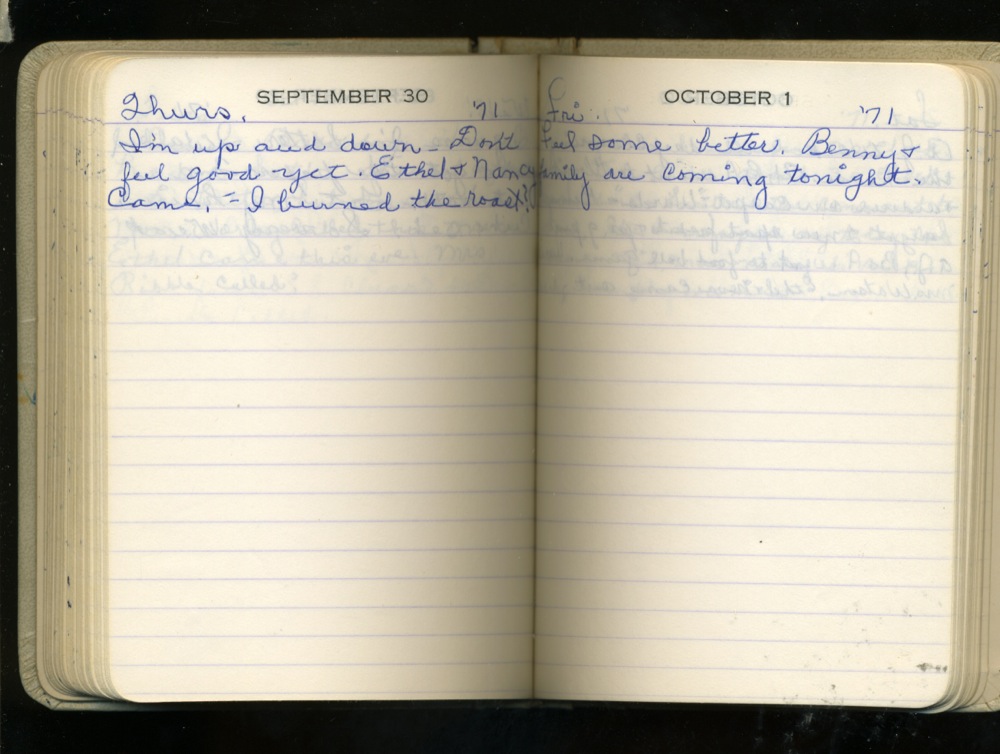 SEPTEMBER 30
Thurs. '71
I'm up and down - Don't
feel good yet. Ethel & Nancy
Came. = I burned the roast?
OCTOBER 1
Fri. '71
Feel some better. Benny &
family are coming tonight.